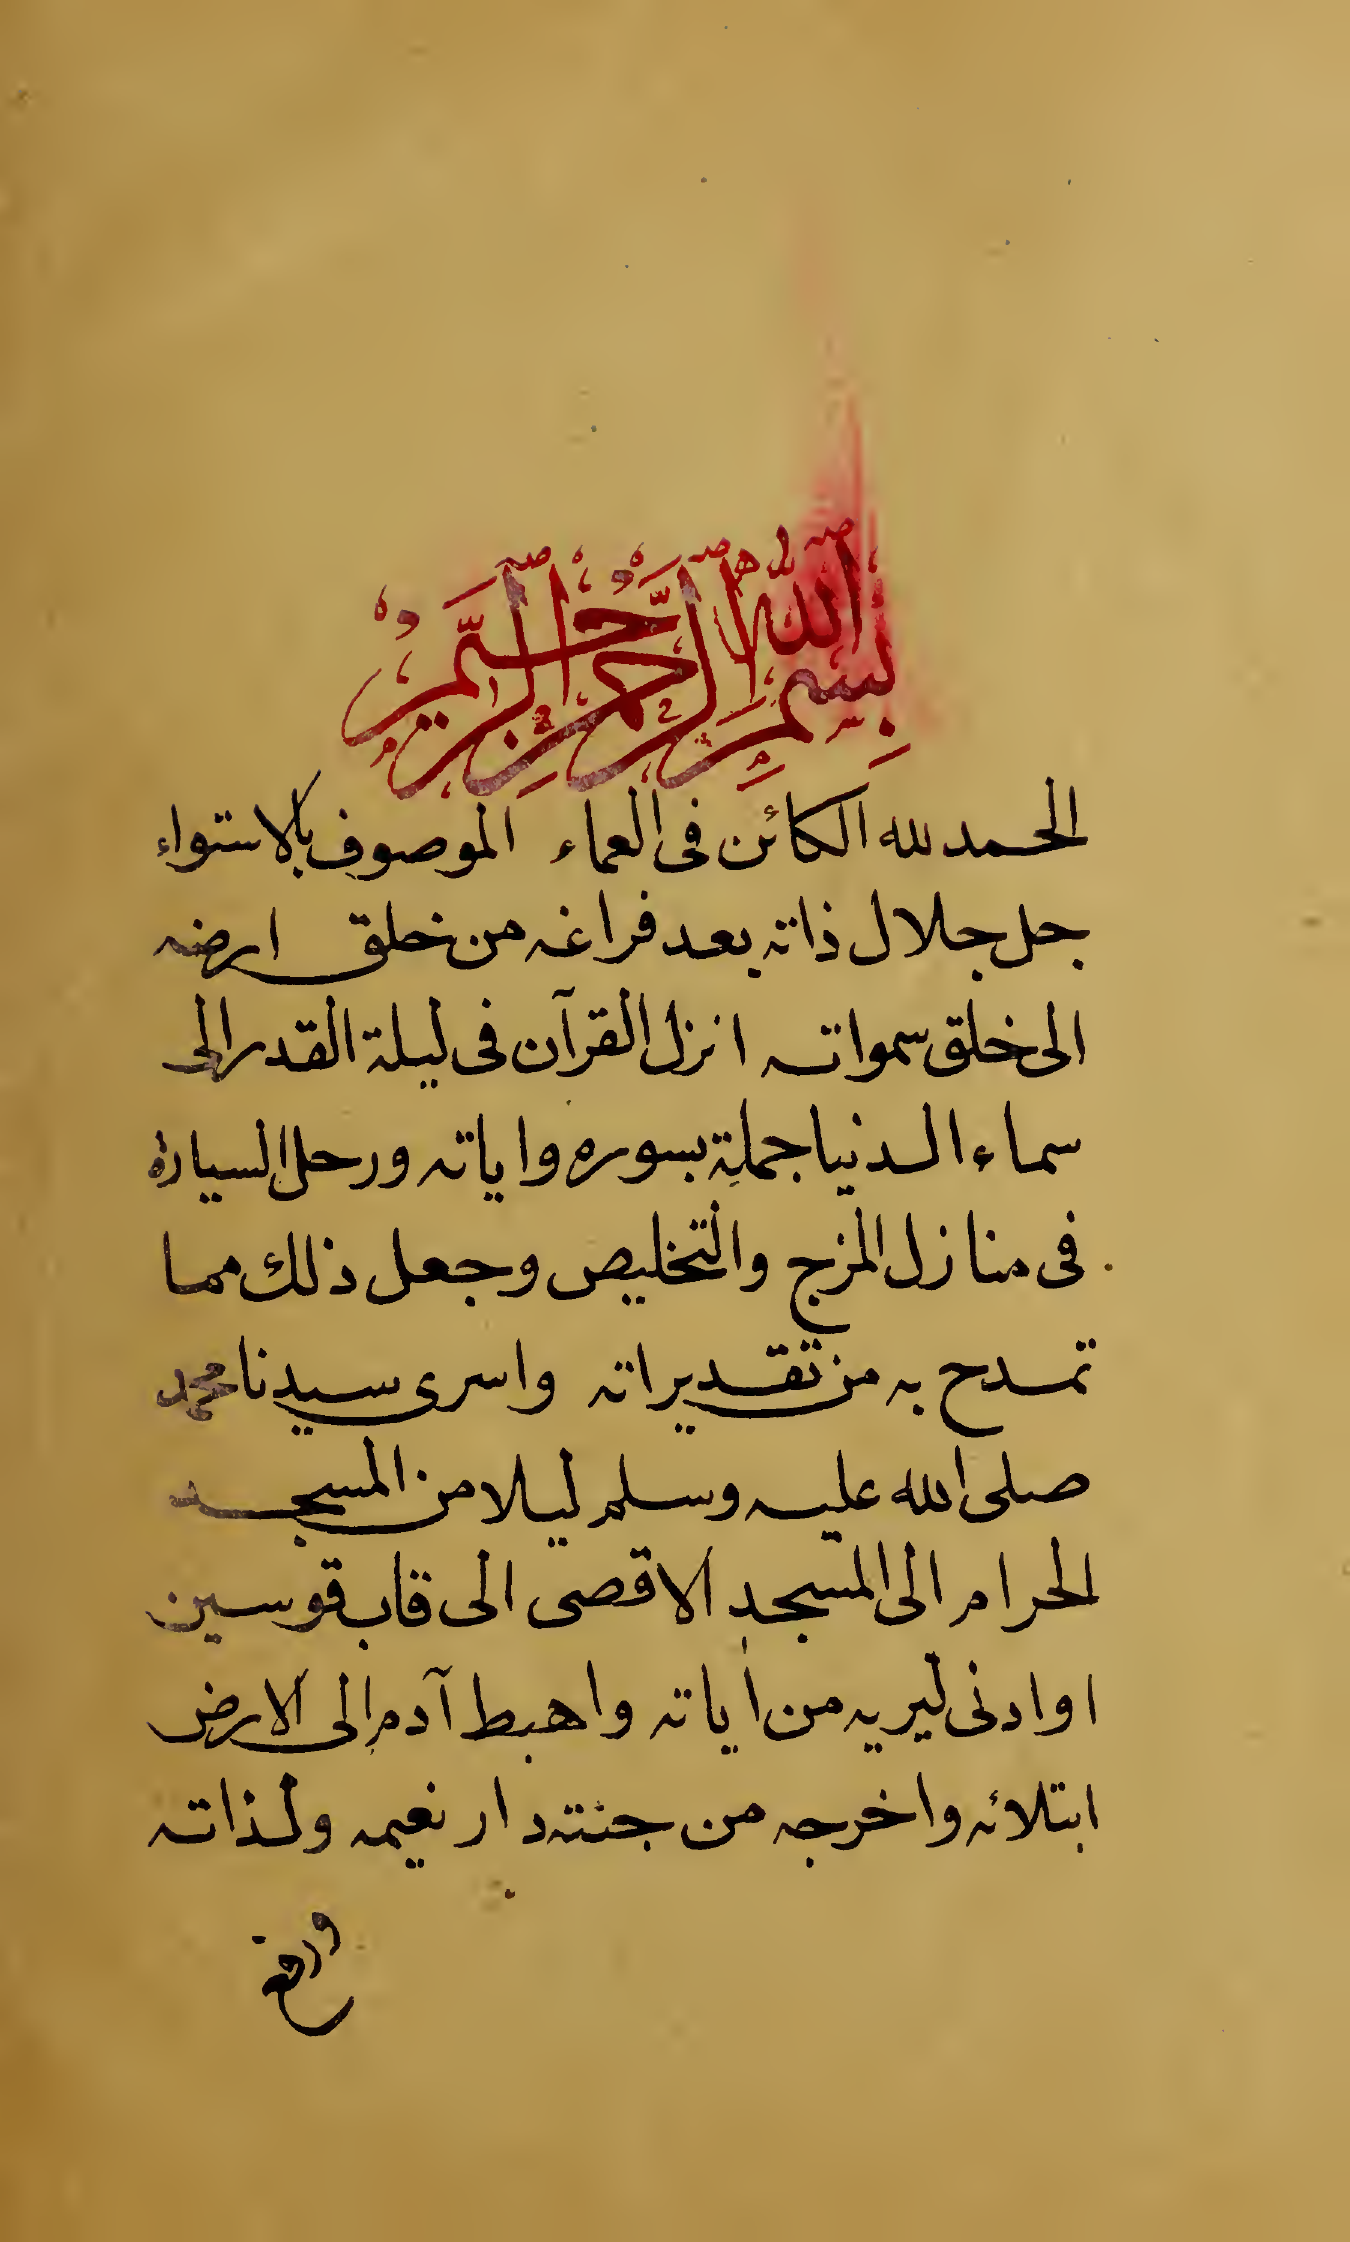 بسم الله الرحمن الرحيم
الحمد لله الكائن فى العماء الموصوف بالاستواء
جل جلال ذاته بعد فراغه من خلق ارضه
الى خلق سمواته انزل القرآن فى ليلة القدر الى
سماء الدنيا جملة بسوره واياته ورحل السيارة
فى منازل المزج والتخليص وجعل ذلك مما
تمدح به من تقديراته واسرى سيدنا محمد
صلى الله عليه وسلم ليلا من المسجد
الحرام الى المسجد الاقصى الى قاب قوسين
او ادنى ليريه من اياته واهبط آدم الى الارض
ابتلائه واخرجه من جنته دار نعيمه ولذاته
ورفع